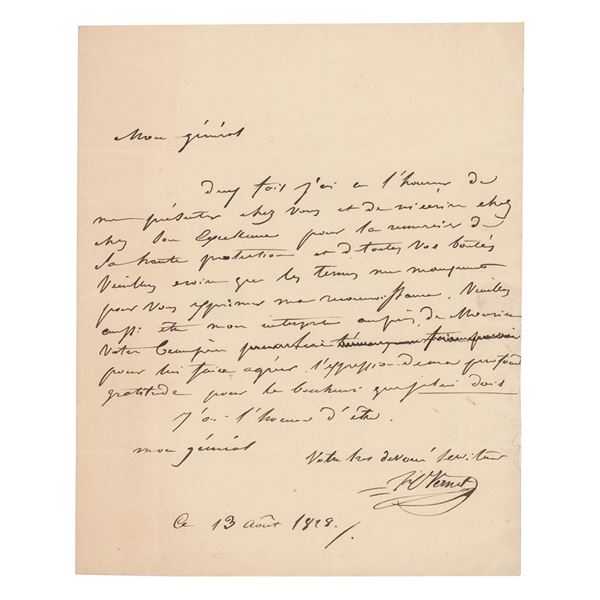 Mon général
deux fois j'ai eu l'honneur de
me présenter chez vous et de m'écrire chez
chez Son Excellence pour la remercier de
sa haute protection et de toutes Vos bontés
Veuillez croire que les termes me manquent
pour Vous exprimer ma reconnoissance. Veuillez
aussi être mon interprete auprès de Monsieur
Votre beaupère
pour lui faire agréer l'expression de ma profonde
gratitude pour le bonheur que je lui dois
J'ai l'honneur d'être
mon général
Votre tres devoué serviteur
H Vernet
Ce 13 août 1828.